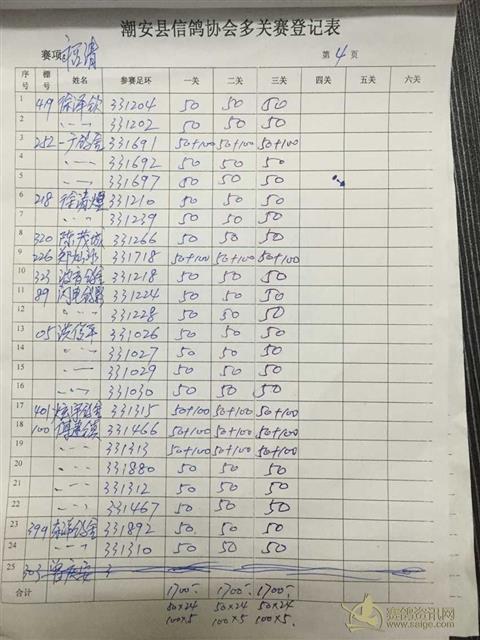 潮安县信鸽协会多关赛登记表
赛项: 福清 第 4 页
序号 棚号 姓名 参赛足环 一关 二关 三关 四关 五关 六关
1 419 徐泽钦 331204 50 50 50
2 331202 50 50 50
3 252 一于鸽舍 331691 50+100 50+100 50+100
4 331692 50 50 50
5 331697 50 50 50
6 218 徐清煌 331210 50 50 50
7 331239 50 50 50
8 320 陈茂城 331266 50 50 50
9 226 331718 50+100 50+100 50+100
10 323 331218 50 50 50
11 89 闪电鸽舍 331224 50 50 50
12 331228 50 50 50
13 05 洪 331026 50 50 50
14 331027 50 50 50
15 331029 50 50 50
16 331030 50 50 50
17 401 鸽舍 331315 50+100 50+100 50+100
18 100 331466 50+100 50+100 50+100
19 331313 50+100 50+100 50+100
20 331880 50 50 50
21 331312 50 50 50
22 331467 50 50 50
23 399 鸽舍 331892 50 50 50
24 331310 50 50 50
25 303 3
合计 1700- 1700- 1700-
50×24 50×24 50×24
100×5 100×5 100×5
赛鸽资讯网
www.saige.com